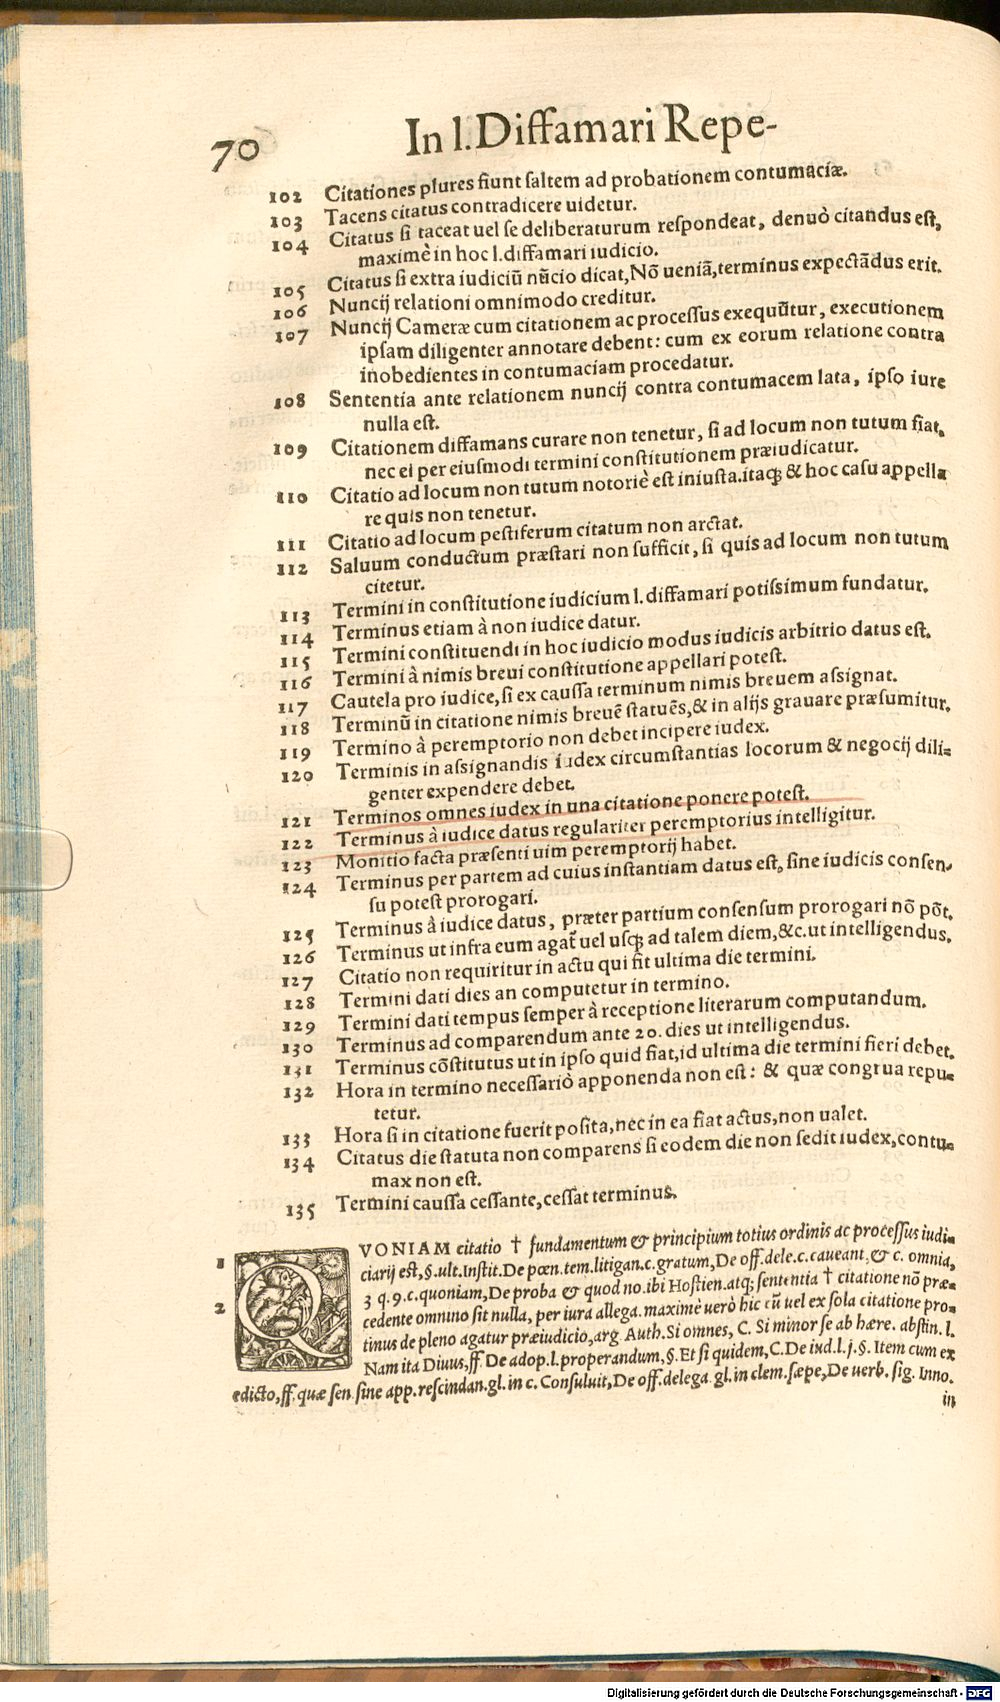 70 In l. Diffamari Repe-
102 Citationes plures fiunt ſaltem ad probationem contumaciæ.
103 Tacens citatus contradicere uidetur.
104 Citatus ſi taceat uel ſe deliberaturum reſpondeat, denuò citandus eſt,
maximè in hoc l. diffamari iudicio.
105 Citatus ſi extra iudiciū nūcio dicat, Nō ueniā, terminus expectādus erit.
106 Nuncij relationi omnimodo creditur.
107 Nuncij Cameræ cum citationem ac proceſſus exequūtur, executionem
ipſam diligenter annotare debent: cum ex eorum relatione contra
inobedientes in contumaciam procedatur.
108 Sententia ante relationem nuncij contra contumacem lata, ipſo iure
nulla eſt.
109 Citationem diffamans curare non tenetur, ſi ad locum non tutum fiat,
nec ei per eiuſmodi termini conſtitutionem præiudicatur.
110 Citatio ad locum non tutum notoriè eſt iniuſta. itaqꝫ & hoc caſu appella
re quis non tenetur.
111 Citatio ad locum peſtiferum citatum non arctat.
112 Saluum conductum præſtari non ſufficit, ſi quis ad locum non tutum
citetur.
113 Termini in conſtitutione iudicium l. diffamari potiſsimum fundatur.
114 Terminus etiam à non iudice datur.
115 Termini conſtituendi in hoc iudicio modus iudicis arbitrio datus eſt.
116 Termini à nimis breui conſtitutione appellari poteſt.
117 Cautela pro iudice, ſi ex cauſſa terminum nimis breuem aſsignat.
118 Terminū in citatione nimis breuē ſtatuēs, & in alijs grauare præſumitur.
119 Termino à peremptorio non debet incipere iudex.
120 Terminis in aſsignandis iudex circumſtantias locorum & negocij dili-
genter expendere debet.
121 Terminos omnes iudex in una citatione ponere poteſt.
122 Terminus à iudice datus regulariter peremptorius intelligitur.
123 Monitio facta præſenti uim peremptorij habet.
124 Terminus per partem ad cuius inſtantiam datus eſt, ſine iudicis conſen-
ſu poteſt prorogari.
125 Terminus à iudice datus, præter partium conſenſum prorogari nō pōt.
126 Terminus ut infra eum agat̄ uel uſqꝫ ad talem diem, &c. ut intelligendus.
127 Citatio non requiritur in actu qui fit ultima die termini.
128 Termini dati dies an computetur in termino.
129 Termini dati tempus ſemper à receptione literarum computandum.
130 Terminus ad comparendum ante 20. dies ut intelligendus.
131 Terminus cōſtitutus ut in ipſo quid fiat, id ultima die termini fieri debet.
132 Hora in termino neceſſariò apponenda non eſt: & quæ congrua repu-
tetur.
133 Hora ſi in citatione fuerit poſita, nec in ea fiat actus, non ualet.
134 Citatus die ſtatuta non comparens ſi eodem die non ſedit iudex, contu-
max non eſt.
135 Termini cauſſa ceſſante, ceſſat terminus.
1 QVONIAM citatio † fundamentum & principium totius ordinis ac proceſſus iudi-
ciarij eſt, §. ult. Inſtit. De pœn. tem. litigan. c. gratum, De off. dele. c. caueant, & c. omnia,
2 3 q. 9. c. quoniam, De proba & quod no. ibi Hoſtien. atqꝫ ſententia † citatione nō præ-
cedente omnino ſit nulla, per iura allega. maximè uerò hic cū uel ex ſola citatione pro-
tinus de pleno agatur præiudicio, arg. Auth. Si omnes, C. Si minor ſe ab hære. abſtin. l.
Nam ita Diuus, ff. De adop. l. properandum, §. Et ſi quidem, C. De iud. l. j. §. Item cum ex
edicto, ff. quæ ſen. ſine app. reſcindan. gl. in c. Conſuluit, De off. delega. gl. in clem. ſæpe, De uerb. ſig. Inno.
in
Digitalisierung gefördert durch die Deutsche Forschungsgemeinschaft - DFG